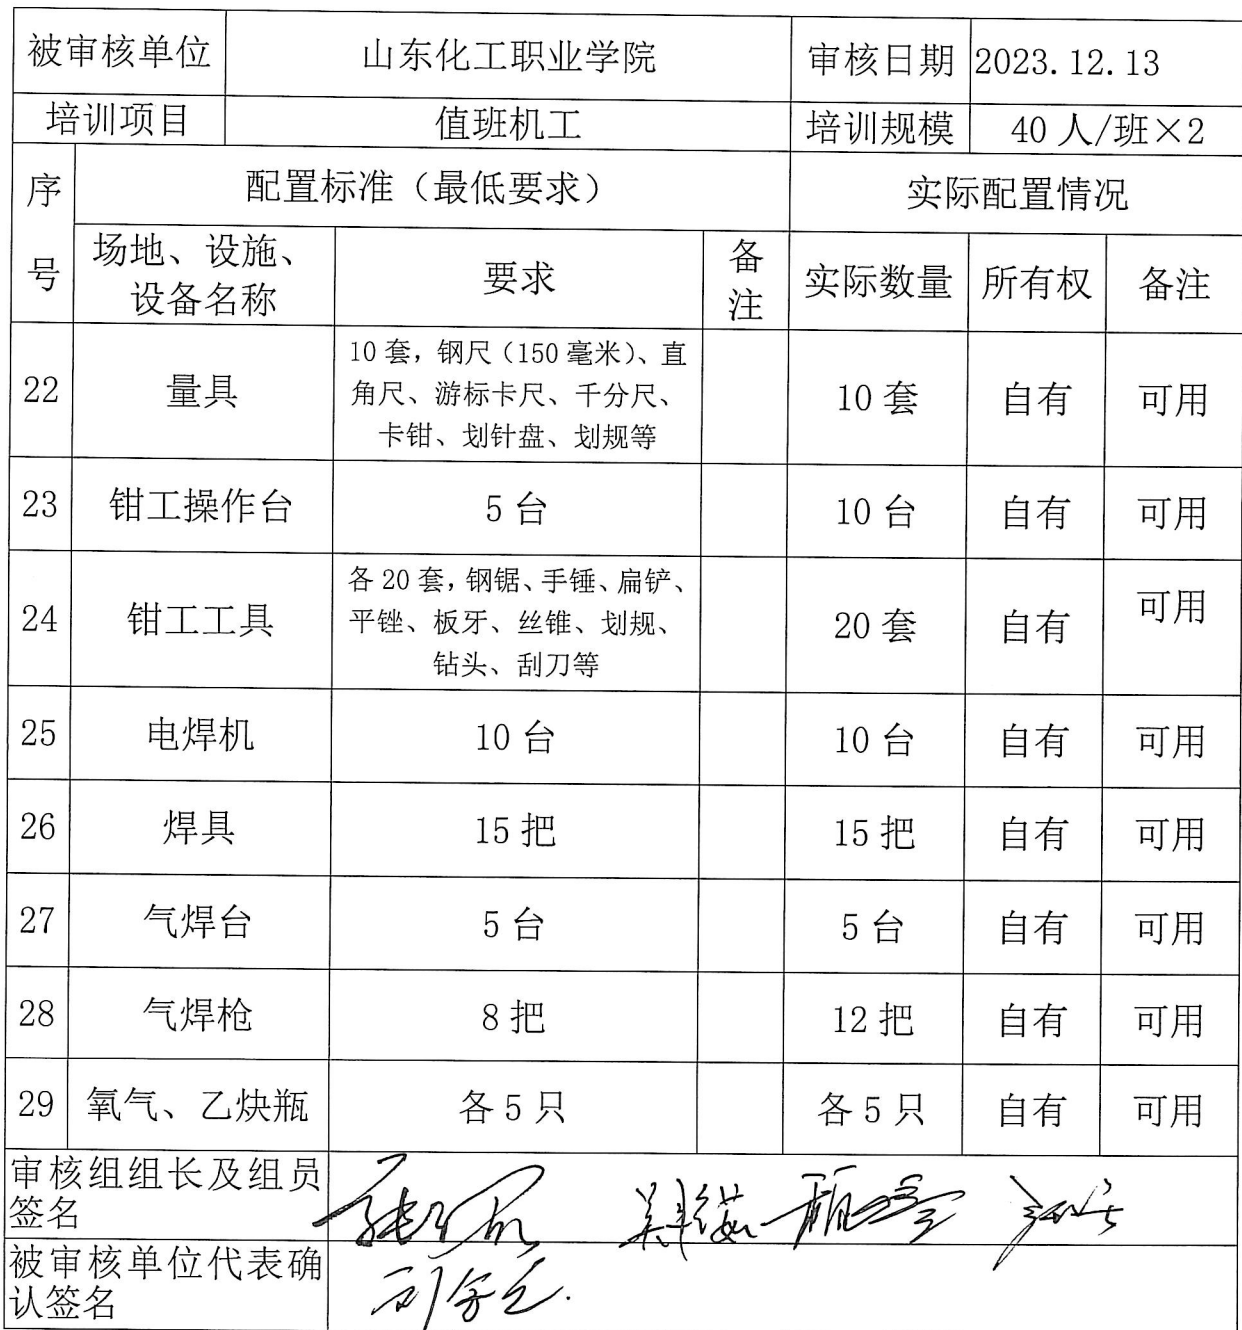 被审核单位 山东化工职业学院 审核日期 2023.12.13
培训项目 值班机工 培训规模 40人/班×2
序号 配置标准（最低要求） 实际配置情况
场地、设施、设备名称 要求 备注 实际数量 所有权 备注
22 量具 10套，钢尺（150毫米）、直角尺、游标卡尺、千分尺、卡钳、划针盘、划规等 10套 自有 可用
23 钳工操作台 5台 10台 自有 可用
24 钳工工具 各20套，钢锯、手锤、扁铲、平锉、板牙、丝锥、划规、钻头、刮刀等 20套 自有 可用
25 电焊机 10台 10台 自有 可用
26 焊具 15把 15把 自有 可用
27 气焊台 5台 5台 自有 可用
28 气焊枪 8把 12把 自有 可用
29 氧气、乙炔瓶 各5只 各5只 自有 可用
审核组组长及组员签名
被审核单位代表确认签名